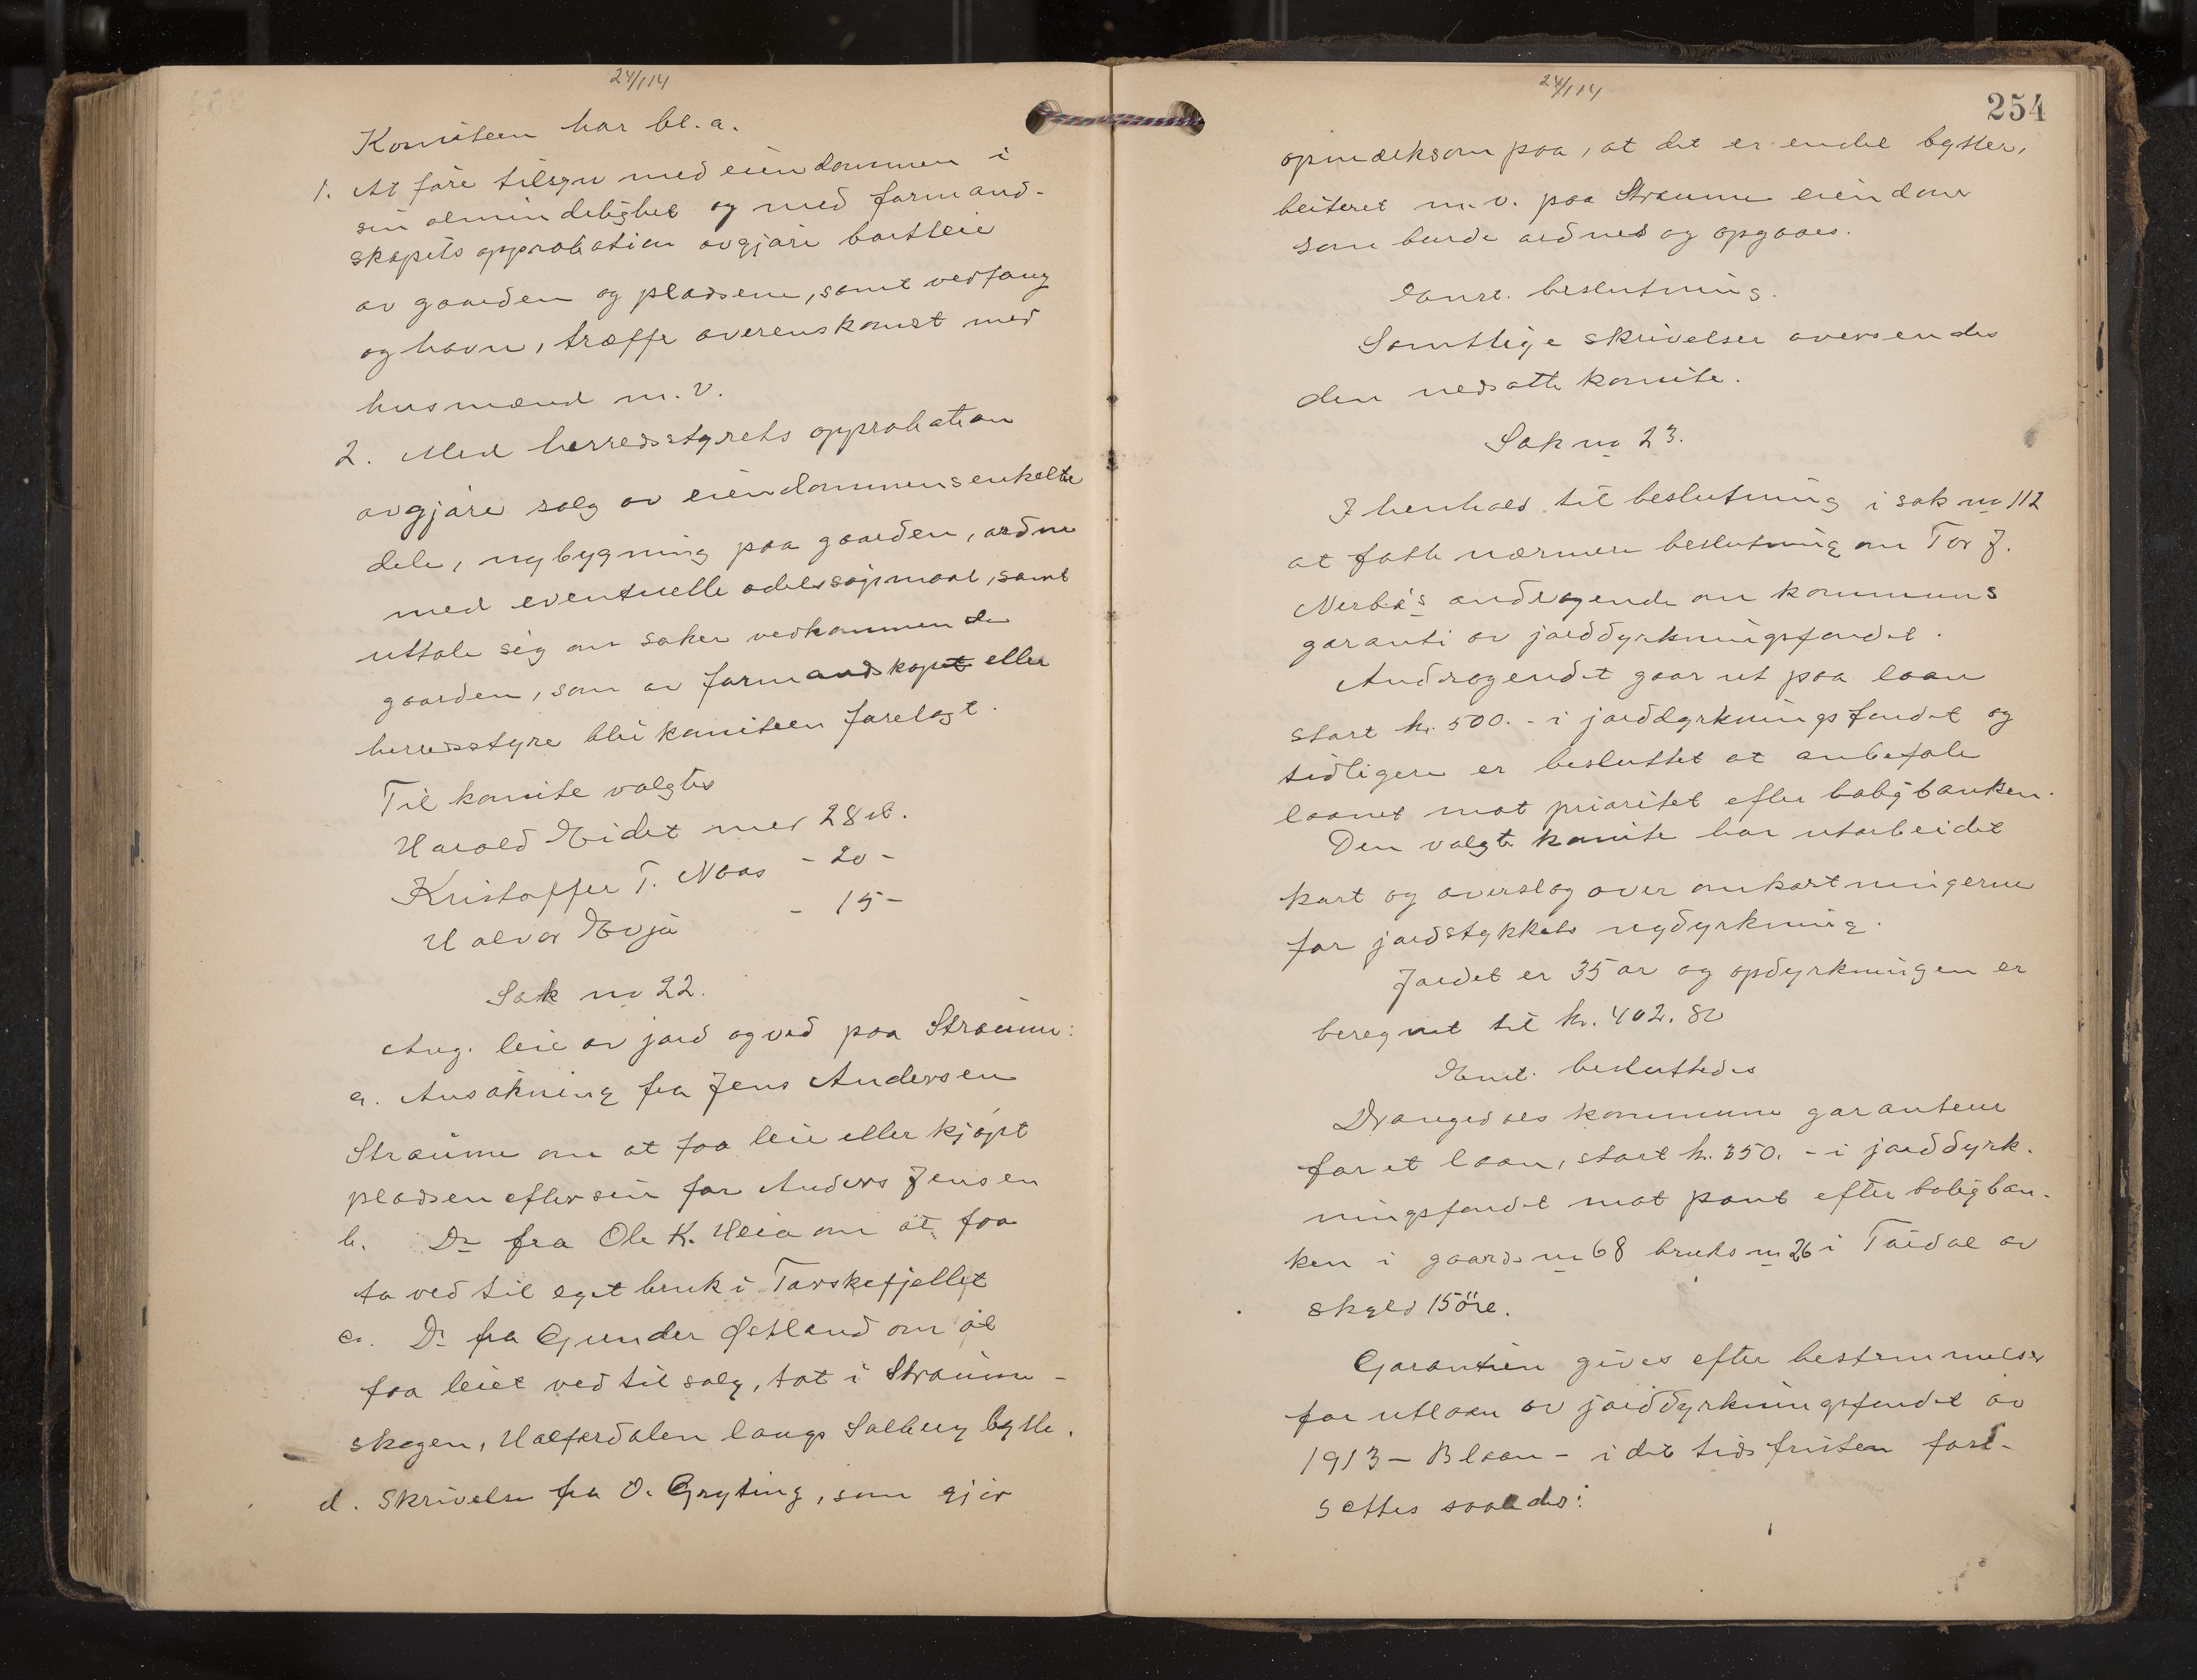 24/1 14
Komiteen har bl. a.
1. At føre tilsyn med eiendommen i
sin almindelighet og med formand-
skapets approbation avgjøre bortleie
av gaarden og pladsene, samt vedfang
og havn, træffe overenskomst med
husmænd m. v.
2. Med herredsstyrets approbation
avgjøre salg av eiendommens enkelte
dele, nybygning paa gaarden, ordne
med eventuelle odelssøjsmaal, samt
uttale sig om saker vedkommende
gaarden, som av formandskapet eller
herredsstyre blir komiteen forelagt.
Til komite valgtes
Harald Eidet med 28 st.
Kristoffer T. Naas - 20 -
Halvor Evju - 15 -
Sak no 22.
Ang. leie av jord og ved paa Straume:
a. Ansøkning fra Jens Andersen
Straume om at faa leie eller kjøpt
pladsen efter sin far Anders Jensen
b. Do fra Ole K. Heia om at faa
ta ved til eget bruk i Torskefjellet
c. Do fra Gunder Østland om at
faa leiet ved til salg, tat i Straume-
skogen, Halferdalen langs Solberg bytte.
d. Skrivelse fra O. Gryting, som gjør
24/1 14
254
opmerksom paa, at det er endel bytter,
beiteret m. v. paa Straume eiendom
som burde ordnes og opgaaes.
Enst. beslutning.
Samtlige skrivelser oversendes
den nedsatte komite.
Sak no 23.
I henhold til beslutning i sak no 112
at fatte nærmere beslutning om Tor J.
Nerbø's andragende om kommunens
garanti av jorddyrkningsfondet.
Andragendet gaar ut paa laan
stort kr. 500.- i jorddyrkningsfondet og
tidligere er besluttet at anbefale
laanet mot prioritet efter boligbanken.
Den valgte komite har utarbeidet
kart og overslag over omkostningerne
for jordstykkets nydyrkning.
Jordet er 35 ar og opdyrkningen er
beregnet til kr. 402.80
Enst. besluttedes
Drangedals kommune garanterer
for et laan, stort kr. 350.- i jorddyrk-
ningsfondet mot pant efter boligban-
ken i gaards no 68 bruks no 26 i Tørdal av
skyld 15 öre.
Garantien gives efter bestemmelser
for utlaan av jorddyrkningsfondet av
1913 - B laan - idet tidsfristen fast-
settes saaledes: